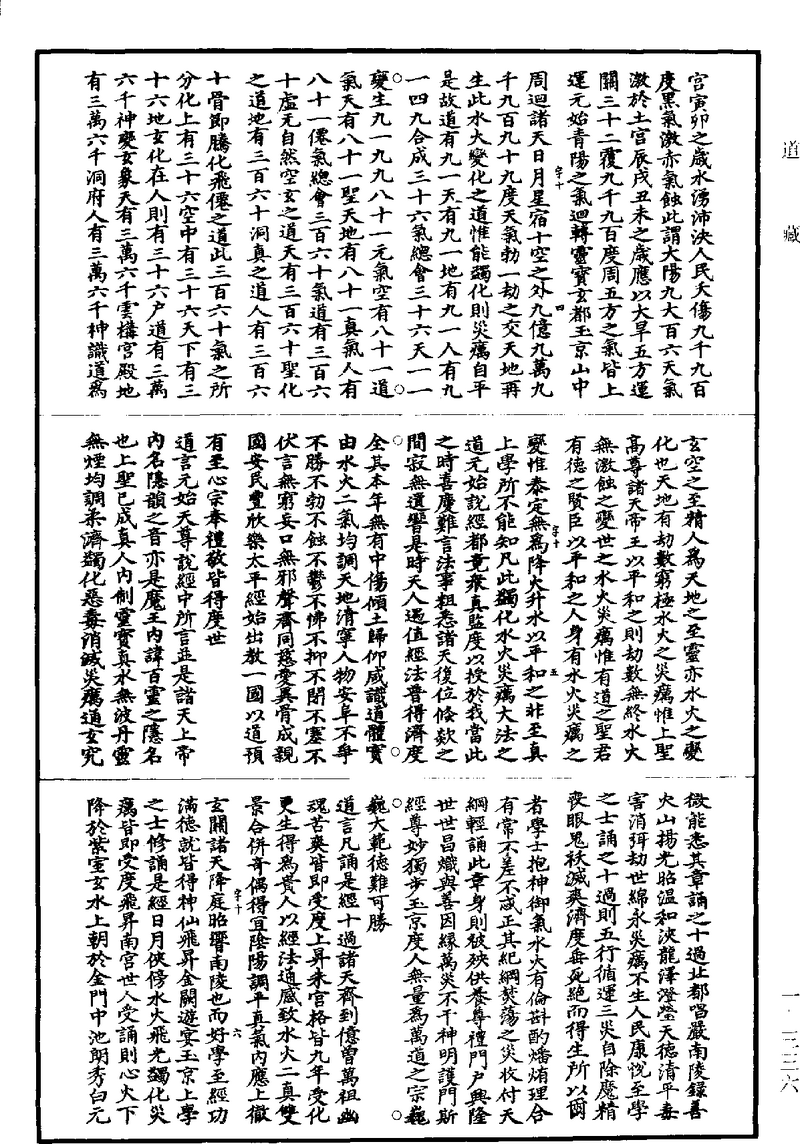 道藏
宮寅卯之歲水湧沛泱人民夭傷九千九百
度黑氣激赤氣蝕此謂大陽九大百六天氣
激於土宮辰戌丑未之歲應以大旱五方運
關三十二覆九千九百度周五方之氣皆上
運元始青陽之氣迴轉靈寶玄都玉京山中
字十 四
周迴諸天日月星宿十空之外九億九萬九
千九百九十九度天氣勃一劫之交天地再
生此水火變化之道惟能蠲化則災癘自平
是故道有九一天有九一地有九一人有九
一四九合成三十六氣總會三十六天一一
變生九一九九八十一元氣空有八十一道
氣天有八十一聖天地有八十一真氣人有
八十一僊氣總會三百六十氣道有三百六
十虛无自然空玄之道天有三百六十聖化
之道地有三百六十洞真之道人有三百六
十骨節騰化飛僊之道此三百六十氣之所
分化上有三十六空中有三十六天下有三
十六地玄化在人則有三十六戶道有三萬
六千神變玄象天有三萬六千雲構宮殿地
有三萬六千洞府人有三萬六千神識道為
玄空之至精人為天地之至靈亦水火之變
化也天地有劫數窮極水火之災癘惟上聖
高尊諸天帝王以平和之則劫數無終水火
無激蝕之變世之水火災癘惟有道之聖君
有德之賢臣以平和之人身有水火災癘之
字十 五
變惟泰定無為降火升水以平和之非至真
上學所不能知凡此蠲化水火災癘大法之
道元始說經都竟衆真監度以授於我當此
之時喜慶難言法事粗悉諸天復位倏欻之
間寂無遺響是時天人遇值經法普得濟度
全其本年無有中傷傾土歸仰咸識道體實
由水火二氣均調天地清寧人物安阜不爭
不勝不勃不蝕不鬱不怫不抑不閉不塞不
伏言無窮妄口無邪聲齊同慈愛異骨成親
國安民豐欣樂太平經始出教一國以道預
有至心宗奉禮敬皆得度世
道言元始天尊說經中所言並是諸天上帝
內名隱韻之音亦是魔王內諱百靈之隱名
也上聖已成真人內制靈寶真水無波丹靈
無煙均調柔濟蠲化惡毒消滅災癘道玄究
微能悉其章誦之十過北都唱嚴南陵錄善
火山揚光昭溫和泱龍澤澄瑩天德清平毒
害消弭劫世綿永災癘不生人民康悅至學
之士誦之十過則五行循運三災自除魔精
喪眼鬼祅滅爽濟度垂死絕而得生所以爾
者學士抱神御氣水火有倫斟酌燔煩理合
有常不差不惑正其紀綱焚蕩之災收付天
綱輕誦此章身則被殃供養尊禮門戶興隆
世世昌熾與善因緣萬災不干神明護門斯
經尊妙獨步玉京度人無量為萬道之宗巍
巍大範德難可勝
道言凡誦是經十過諸天齊到億曾萬祖幽
魂苦爽皆即受度上昇朱宮格皆九年受化
更生得為貴人以經法通感致水火二真雙
景合併奇偶得宜陰陽調平真氣內應上徹
字十 六
玄關諸天降庭昭響南陵也而好學至經功
滿德就皆得神仙飛昇金闕遊宴玉京上學
之士修誦是經日月俠傍水火飛光蠲化災
癘皆即受度飛昇南宮世人受誦則心火下
降於紫室玄水上朝於金門中池朗秀白元
一·三三六